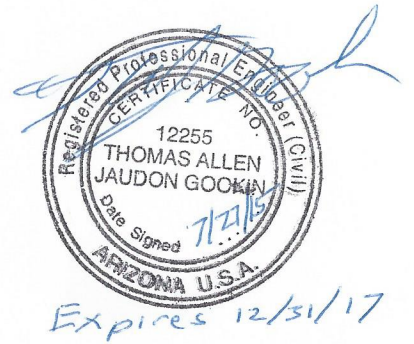 Registered Professional Engineer (Civil)
CERTIFICATE NO.
12255
THOMAS ALLEN
JAUDON GOOKIN
Date Signed
7/27/15
ARIZONA U.S.A.
Expires 12/31/17